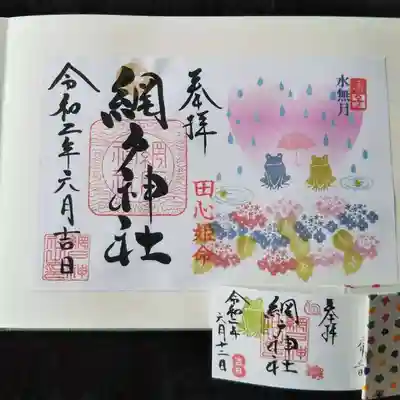 水無月
奉拝
田心姫命
網戸神社
令和二年六月吉日
奉拝
網戸神社
令和二年
六月十二日